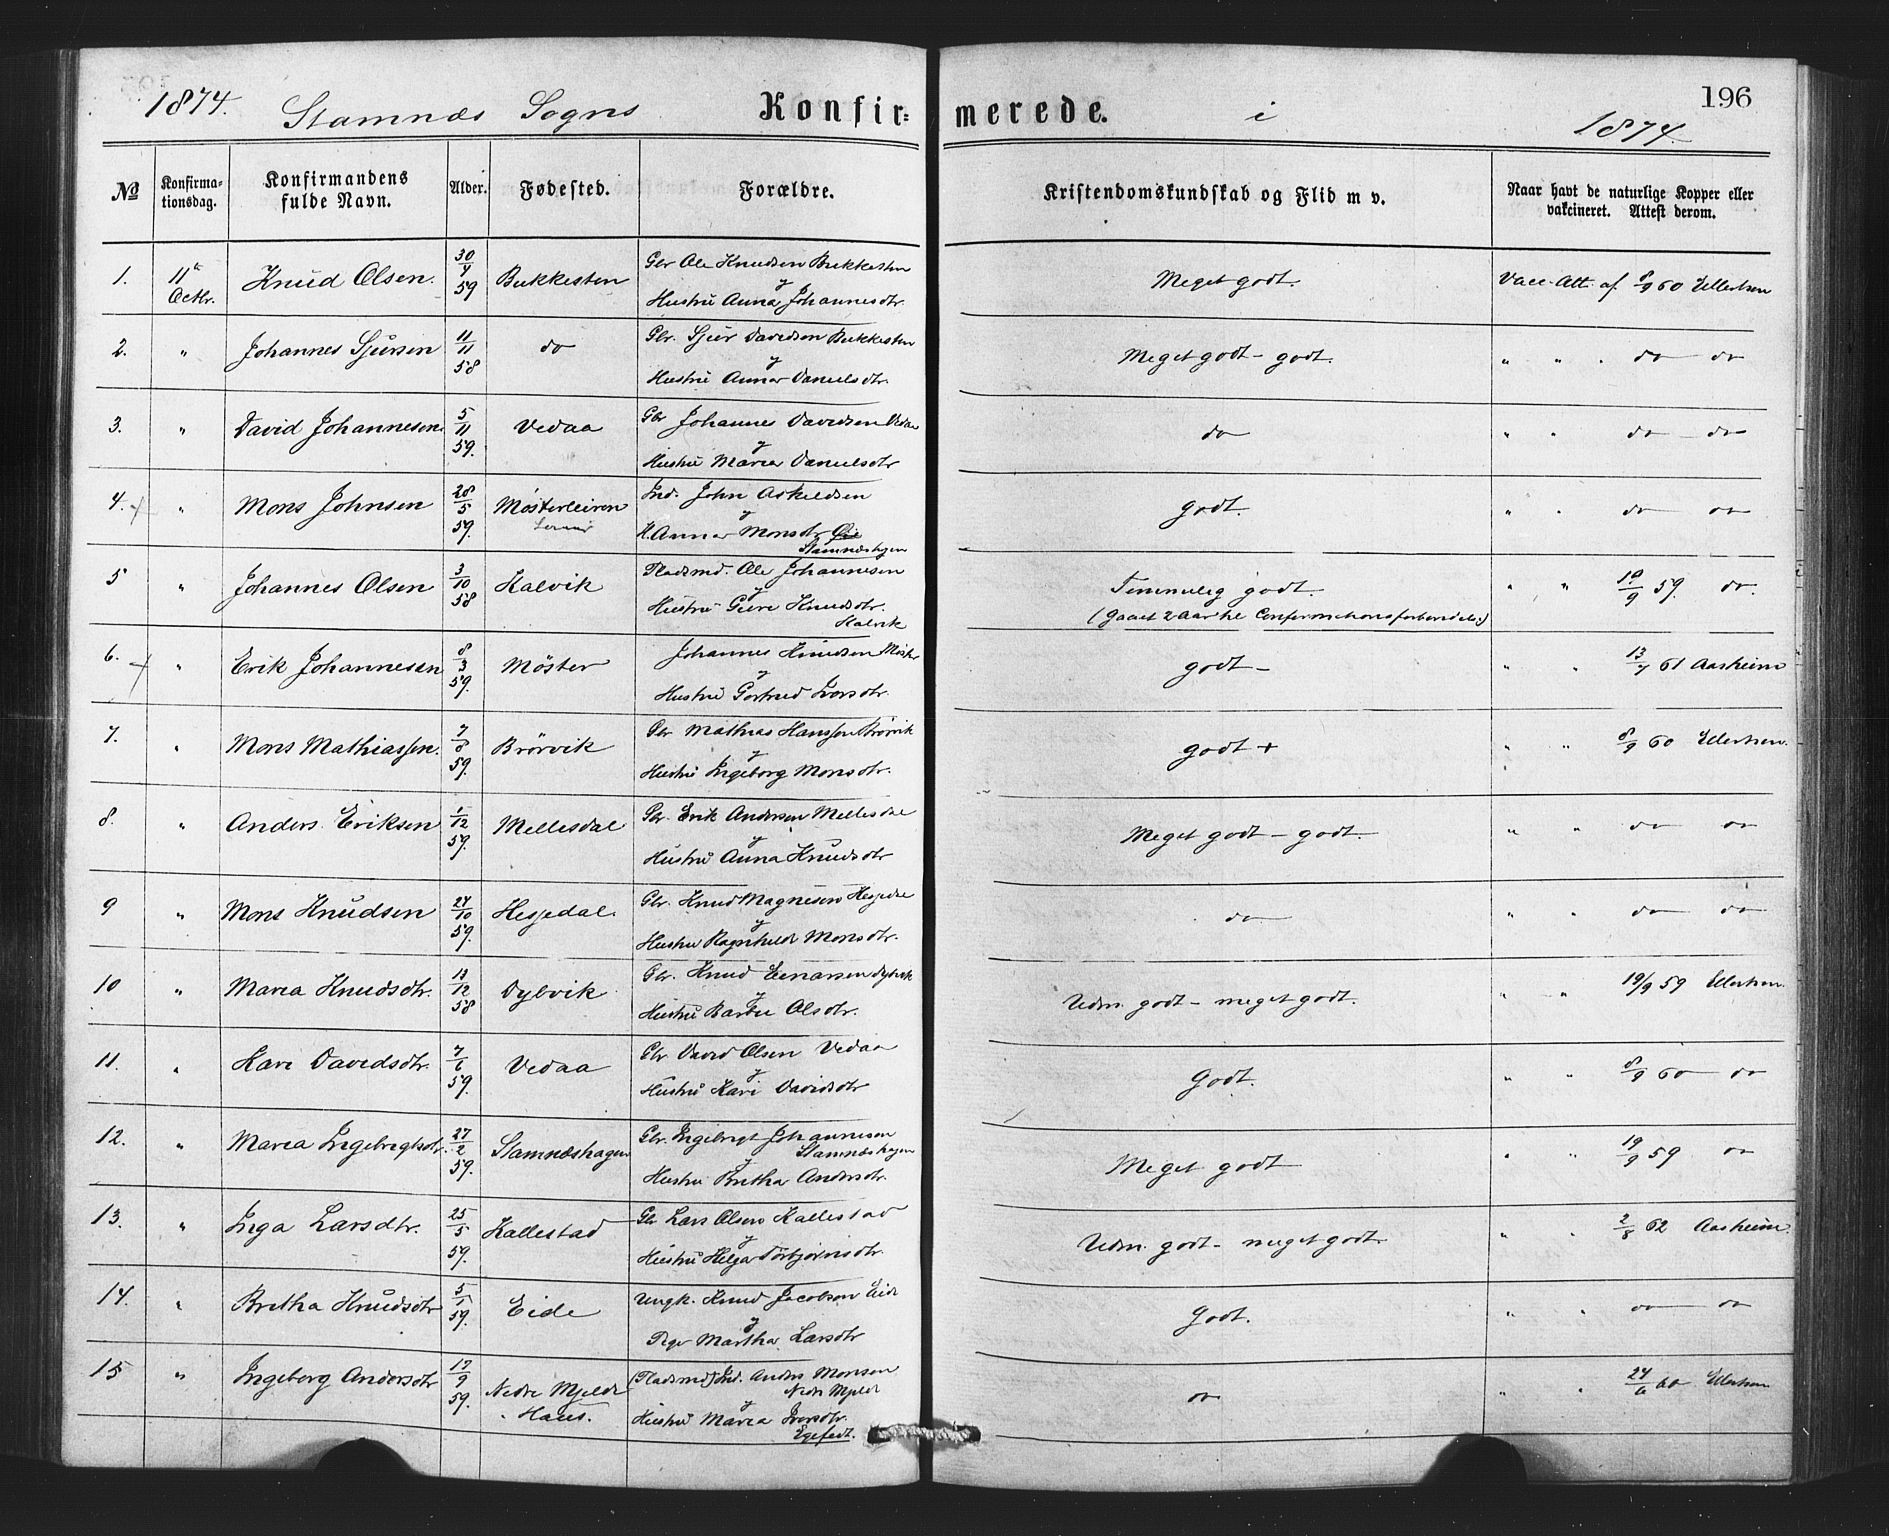 1874. Stamnæs Sogns Konfir= merede. i 1874. 196
№ Konfirma-tionsdag. Konfirmandens fulde Navn. Alder. Fødested. Forældre. Kristendomskundskab og Flid m v. Naar havt de naturlige Kopper eller vakcineret. Attest derom.
1. 11te Octbr. Knud Olsen. 30/4 59 Bukkesten Gbr Ole Knudsen Bukkesten
y
Hustru Anna Johannesdtr. Meget godt. Vacc. Att. af 8/9 60 Ellertsen
2. " Johannes Sjursen 11/11 58 do Gbr. Sjur Davidsen Bukkesten
y
Hustru Anna Danielsdtr. Meget godt - godt. " " do do
3. " David Johannesen. 5/11 59. Vedaa Gbr Johannes Davidsen Vedaa
y
Hustru Maria Danielsdtr do " " do do
4. " Mons Johnsen 28/5 59. Møsterleiren Ind. John Askeldsen
y
H. Anna Monsdtr
Stamnæshagen godt. " " do do
5 " Johannes Olsen 3/10 58 Kalvik Pladsmd. Ole Johannesen
y
Hustru Guri Knudsdtr.
Kalvik Temmelig godt. " " 19/9 59. do.
(Gaaet 2 Aar til Confirmationsforberedels.)
6. " Erik Johannesen 8/3 59. Møster Johannes Knudsen Møster
y
Hustru Gertrud Iversdtr. godt - " " 13/7 61 Aasheim
7. " Mons Mathiassen. 7/8 59. Brørvik Gbr Mathias Hanssen Brørvik
y
Hustru Ingeborg Monsdtr. godt + " " 8/9 60 Ellertsen.
8. " Anders Eriksen 1/12 59. Mellesdal Gbr. Erik Andersen Mellesdal
y
Hustru Anna Knudsdtr Meget godt - godt. " " do do
9 " Mons Knudsen 27/10 59. Hesjedal. Gbr. Knud Magnesen Hesjedal
y
Hustru Ragnhild Monsdtr. do " " do do
10 " Maria Knudsdtr. 13/12 58 Dyvik Gbr. Knud Einarsen Dyvik
y
Hustru Barbu Olsdtr. Udm. godt - meget godt. " " 19/9 59 Ellertsen.
11. " Kari Davidsdtr. 7/6 59. Vedaa Gbr David Olsen Vedaa
y
Hustru Kari Davidsdtr Godt. " " 8/9 60 do
12. " Maria Ingebrigtsdtr. 27/2 59. Stamnæshagen Gbr. Ingebrigt Johannesen
Stamnæshagen
y
Hustru Brytha Andersdtr. Meget godt " " 19/9 59 do
13. " Inga Larsdtr. 25/5 59. Kallestad Gbr Lars Olsen Kallestad
y
Hustru Helga Torbjørnsdtr. Udm. godt - meget godt. " " 2/8 62 Aasheim.
14. " Britha Knudsdtr 5/5 59. Eide Ungk. Knud Jacobsen Eide
y
Pige Martha Larsdtr Godt. " " do do
15 " Ingeborg Andersdtr 17/9 59. Nedre Mjelde Haus. (Pladsmd) Ind. Anders Monsen
Nedre Mjelde
y
Hustru Maria Iversdtr.
Egefedt. do " " 24/6 60 Ellertsen